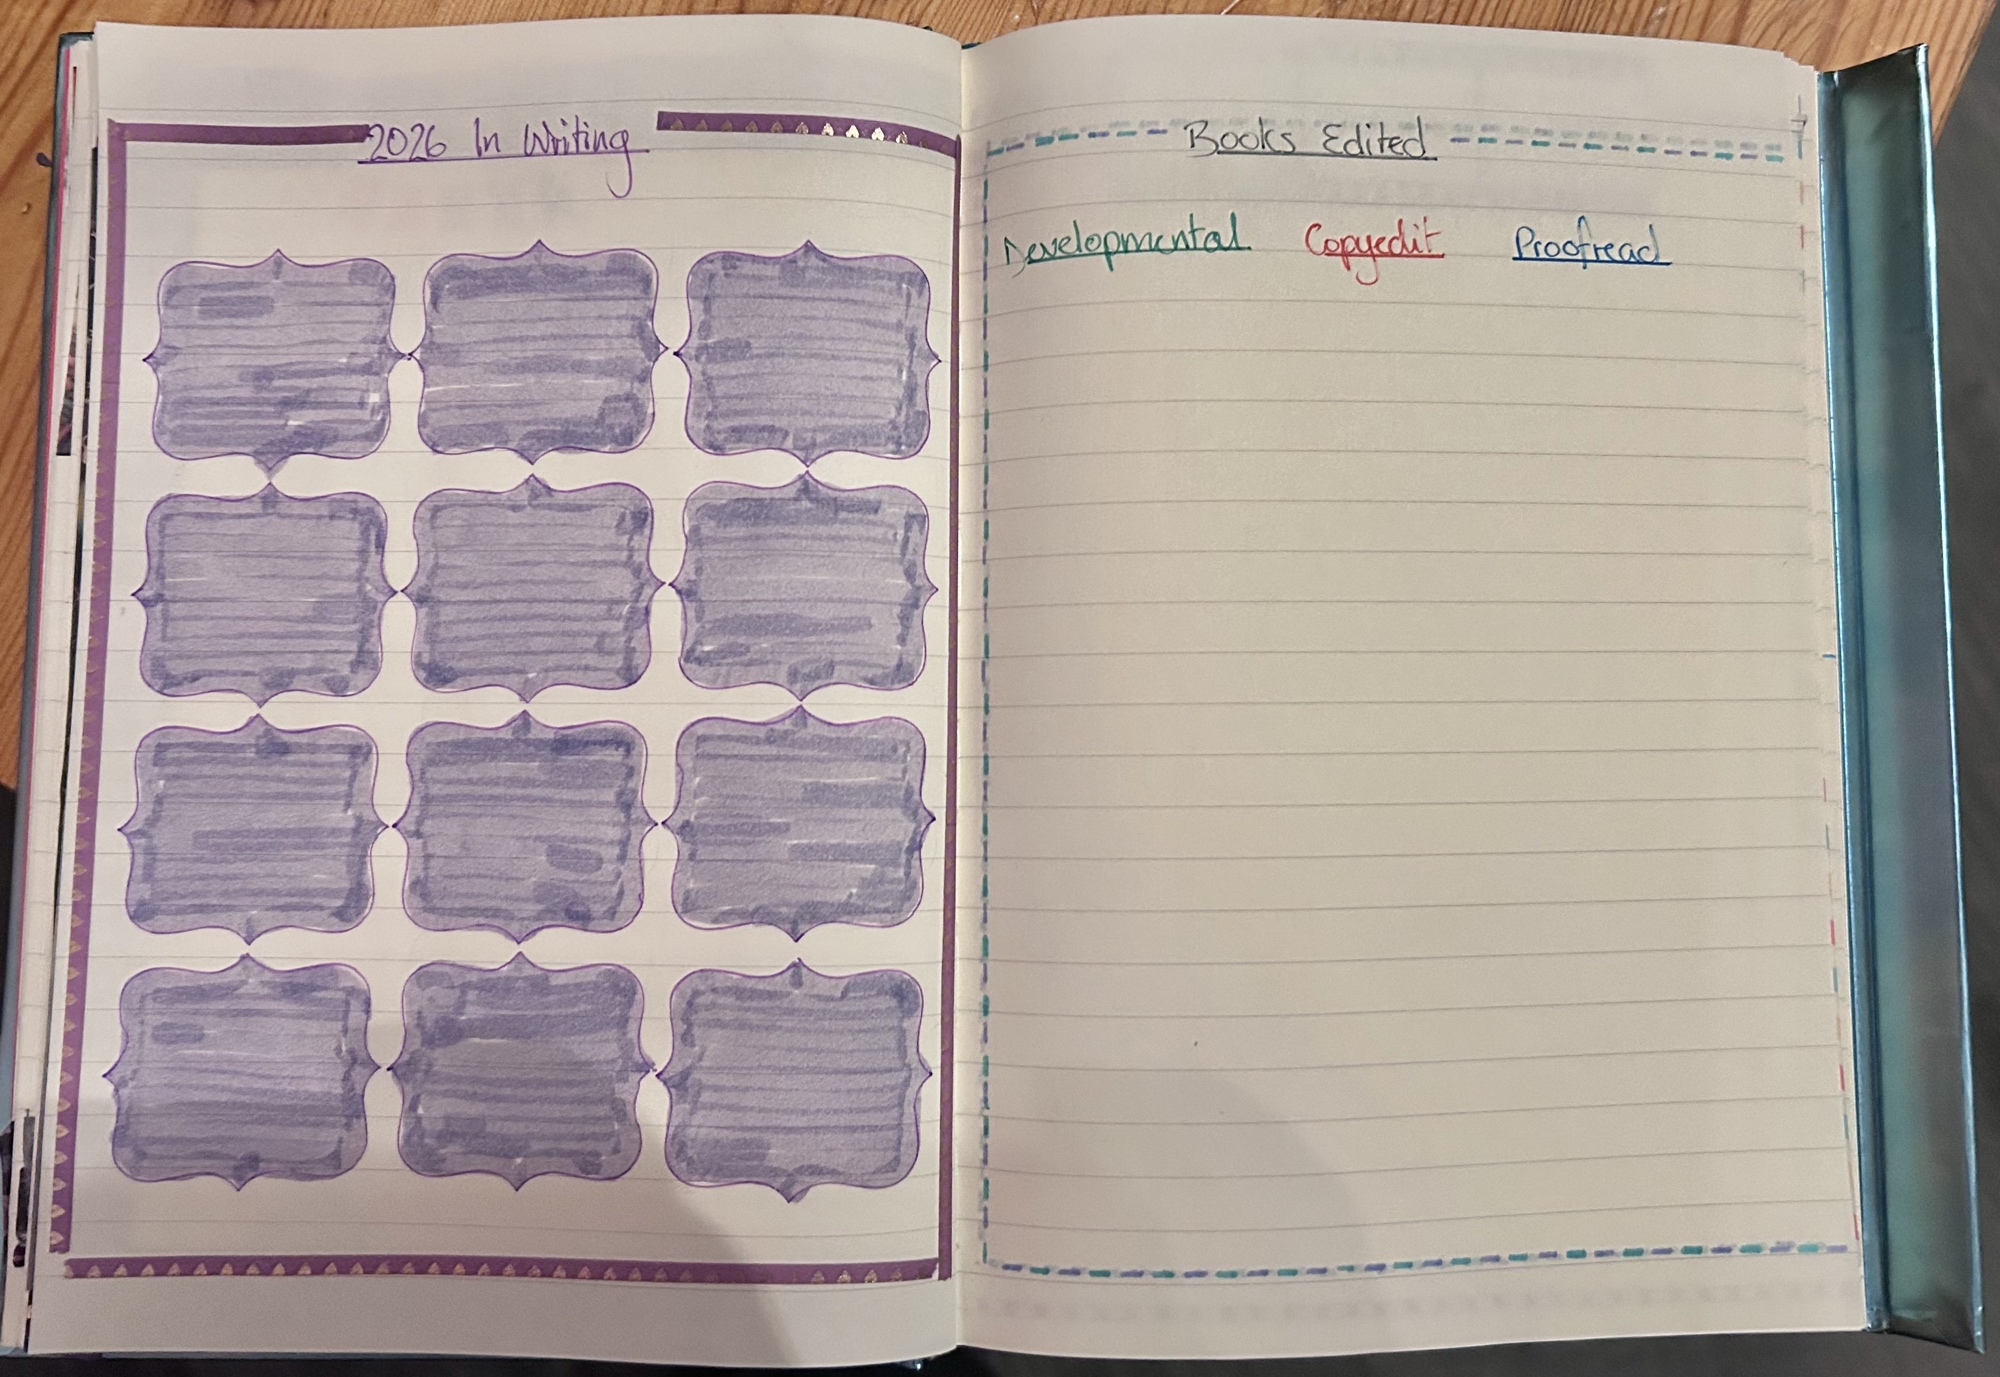 2026 In Writing
Books Edited
Developmental Copyedit Proofread